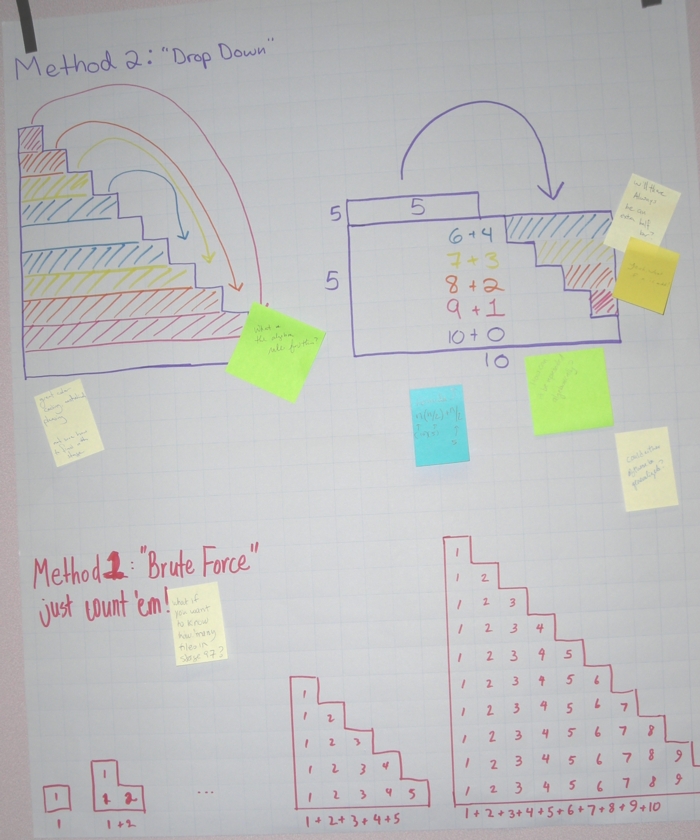 Method 2: "Drop Down"
5
5
6 + 4
7 + 3
5
8 + 2
9 + 1
10 + 0
10
Method 1: "Brute Force"
just count 'em!
what if
you want
to know
how many
tiles in
stage 47?
1
1
1
1 2
1 + 2
...
1
1 2
1 2 3
1 2 3 4
1 2 3 4 5
1 + 2 + 3 + 4 + 5
1
1 2
1 2 3
1 2 3 4
1 2 3 4 5
1 2 3 4 5 6
1 2 3 4 5 6 7
1 2 3 4 5 6 7 8
1 2 3 4 5 6 7 8 9
1 2 3 4 5 6 7 8 9
1 + 2 + 3 + 4 + 5 + 6 + 7 + 8 + 9 + 10